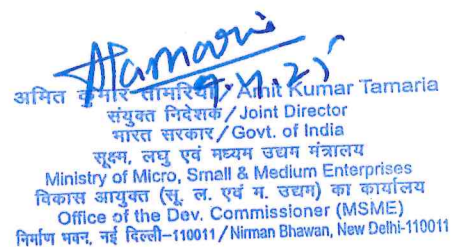 Atamaria
7.11.25
अमित कुमार तामरिया/Amit Kumar Tamaria
संयुक्त निदेशक/Joint Director
भारत सरकार/Govt. of India
सूक्ष्म, लघु एवं मध्यम उद्यम मंत्रालय
Ministry of Micro, Small & Medium Enterprises
विकास आयुक्त (सू. ल. एवं म. उद्यम) का कार्यालय
Office of the Dev. Commissioner (MSME)
निर्माण भवन, नई दिल्ली–110011/Nirman Bhawan, New Delhi-110011